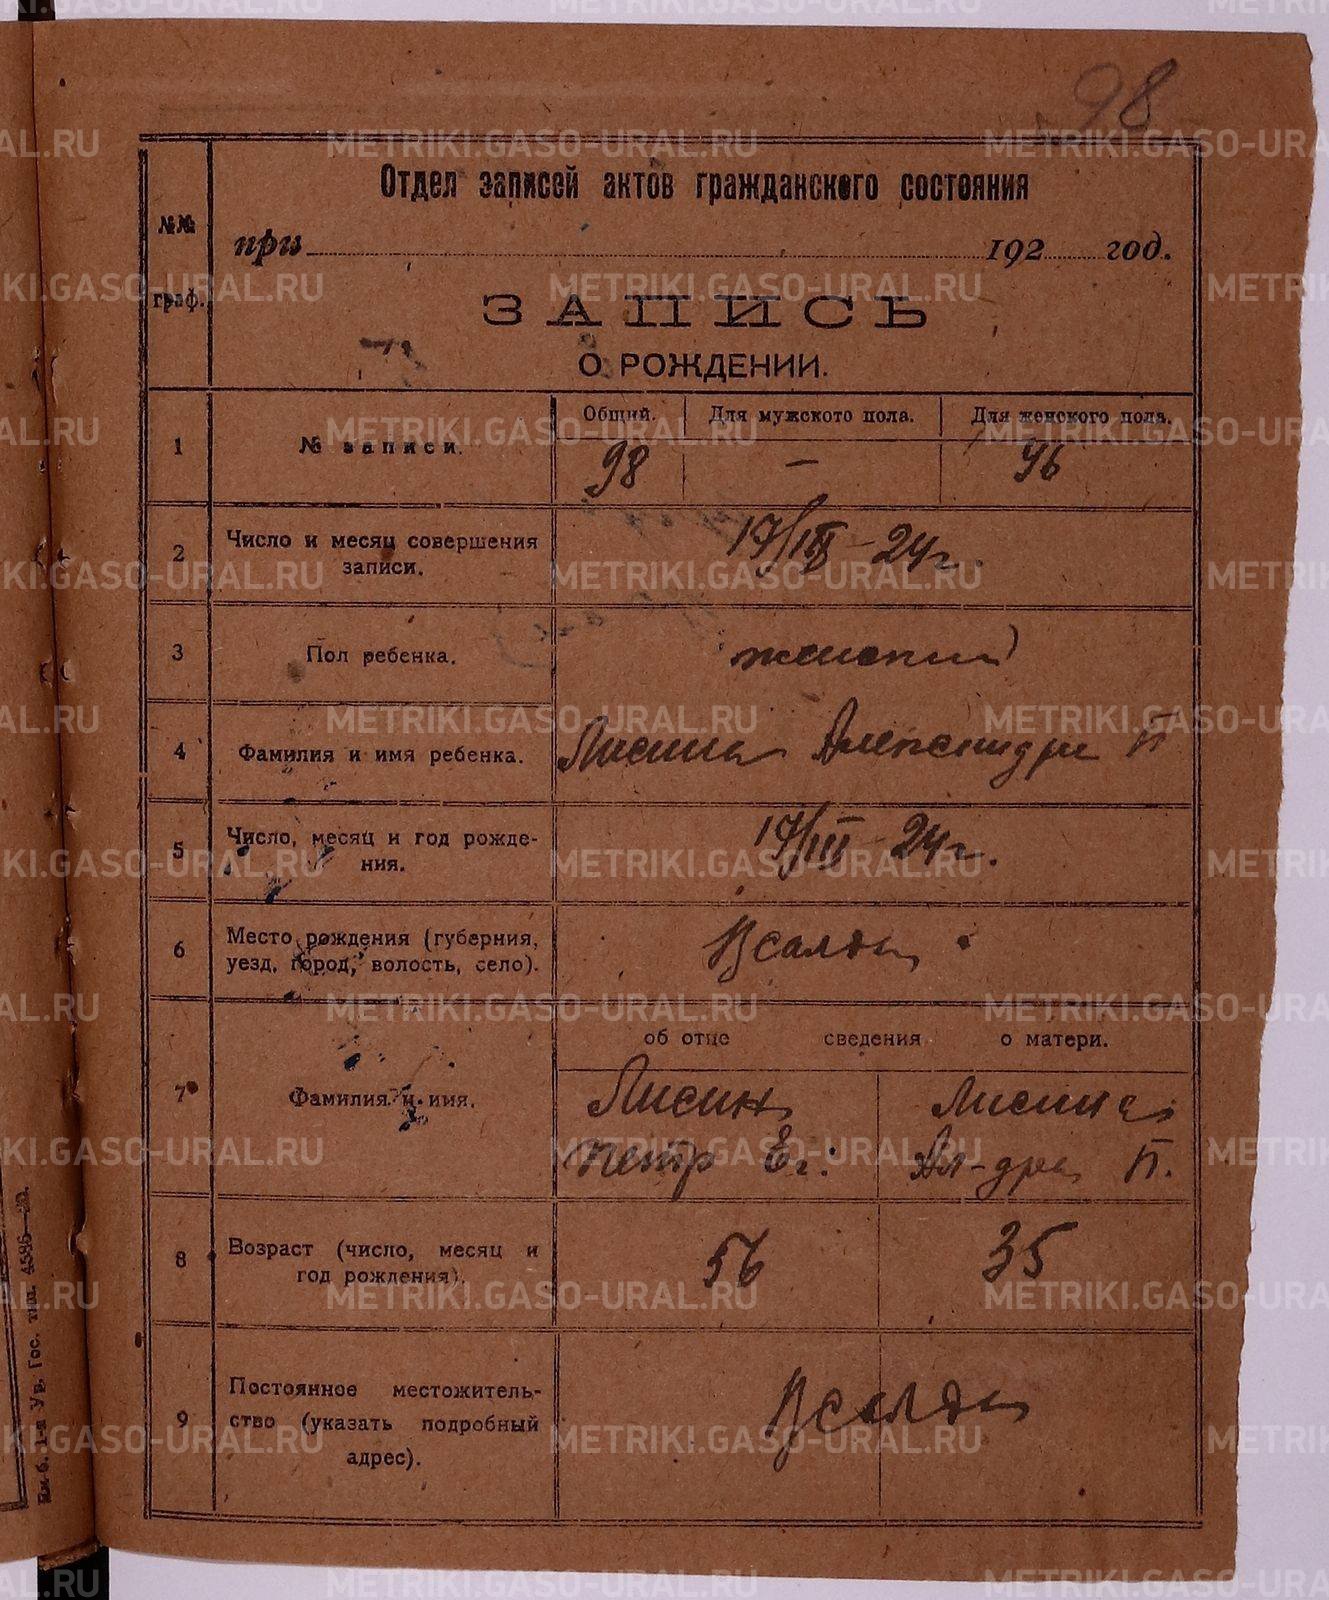 98
Отдел записей актов гражданского состояния
№№
граф.
при 192 год.
ЗАПИСЬ
О РОЖДЕНИИ.
1 № записи. Общий. Для мужского пола. Для женского пола.
98 – 46
2 Число и месяц совершения записи. 17/III – 24 г.
3 Пол ребенка. женский
4 Фамилия и имя ребенка. Лисина Александра П
5 Число, месяц и год рожде-
ния. 17/III – 24 г.
6 Место рождения (губерния,
уезд, город, волость, село). Н Салда
об отце сведения о матери.
7 Фамилия и имя. Лисин Лисина
Петр Ег: Ал-дра П.
8 Возраст (число, месяц и
год рождения). 56 35
9 Постоянное местожитель-
ство (указать подробный
адрес). Салда
METRIKI.GASO-URAL.RU